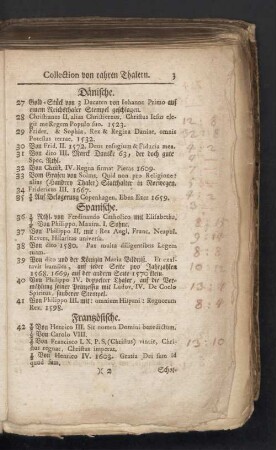 Collection von rahren Thalern. 3
Dänische.
27 Gold-Stück von 3 Ducaten von Iohanne Primo auf
einem Reichsthaler Stempel geschlagen.
28 Christianus II. alias Christiernus, Christus Iesus ele-
git me Regem Populo san. 1523.
29 Frider. & Sophia. Rex & Regina Daniae, omnis
Potestas terrae, 1532.
30 Von Frid. II. 1572. Deus refugium & Fiducia mea.
31 Von dito III. Marck Danske 63, der hoch gute
Spec. Rthl.
32 Von Christ. IV. Regna firmat Pietas 1609.
33 Vom Grafen von Solms, Quid non pro Religione?
alius (Hundert Thaler) Statthalter in Norwegen.
34 Fridericus III. 1667.
35 Auf Belagerung Copenhagen. Eben Ezer 1659.
Spanische.
36 Rthl. von Ferdinando Catholico mit Elisabetha,
Von Philippo Maxim. I. Sohne.
37 Von Philippo II. mit: Rex Angl. Franc. Neapol.
Princ. Hisp. Hilaritas universa.
38 Von dito 1580. Pax multa diligentibus Legem
tuam.
39 Von dito und der Königin Maria Bildnis. Et exal-
tavit humiles, auf jeder Seite zwo Jahrzahlen
1568. 1669, auf der andern Seite 1570 sein.
40 Von Philippo IV. doppelter Thaler, auf die Ver-
mählung seiner Prinzessin mit Ludov. IV. De Coelo
Spiritus, sauberer Stempel.
41 Von Philippo III. mit: omnium Hispani: Regnorum
Rex. 1598.
Frantzösische.
42 Von Henrico III. Sit nomen Domini benedictum.
Von Carolo VIII.
Von Francisco I. X. P. S. (Christus) vincit, Chri-
stus regnat, Christus imperat.
Von Henrico IV. 1603. Gratia Dei sum id
quod sum,
)( 2